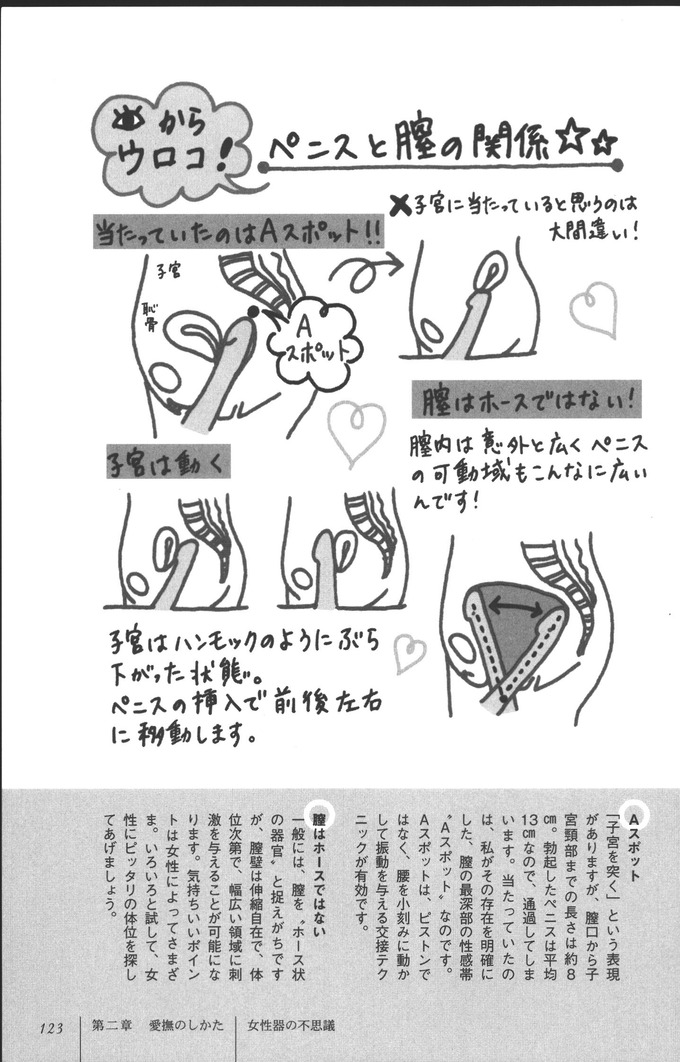 から
ウロコ!
ペニスと膣の関係☆☆
当たっていたのはAスポット!!
✖子宮に当たっていると思うのは
大間違い!
子宮
恥骨
A
スポット
膣はホースではない!
膣内は意外と広くペニス
の可動域もこんなに広い
んです!
子宮は動く
子宮はハンモックのようにぶら
下がった状態。
ペニスの挿入で前後左右
に移動します。
Aスポット
「子宮を突く」という表現
がありますが、膣口から子
宮頸部までの長さは約8
cm。勃起したペニスは平均
13cmなので、通過してしま
います。当たっていたの
は、私がその存在を明確に
した、膣の最深部の性感帯
〝Aスポット〟なのです。
Aスポットは、ピストンで
はなく、腰を小刻みに動か
して振動を与える交接テク
ニックが有効です。
膣はホースではない
一般には、膣を〝ホース状
の器官〟と捉えがちです
が、膣壁は伸縮自在で、体
位次第で、幅広い領域に刺
激を与えることが可能にな
ります。気持ちいいポイン
トは女性によってさまざ
ま。いろいろと試して、女
性にピッタリの体位を探し
てあげましょう。
123
第二章 愛撫のしかた
女性器の不思議